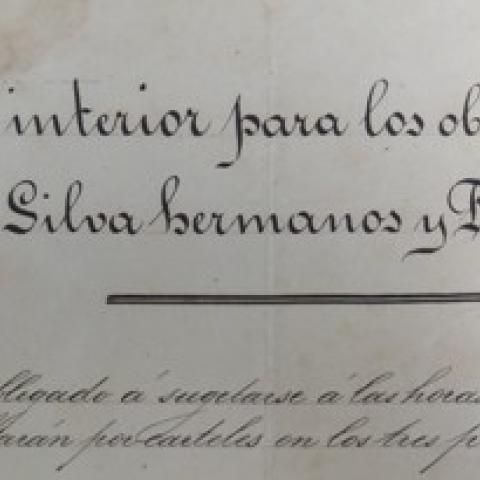 interior para los ob
Silva hermanos y
blegado á sugetarse á las horas
larán por carteles en los tres p